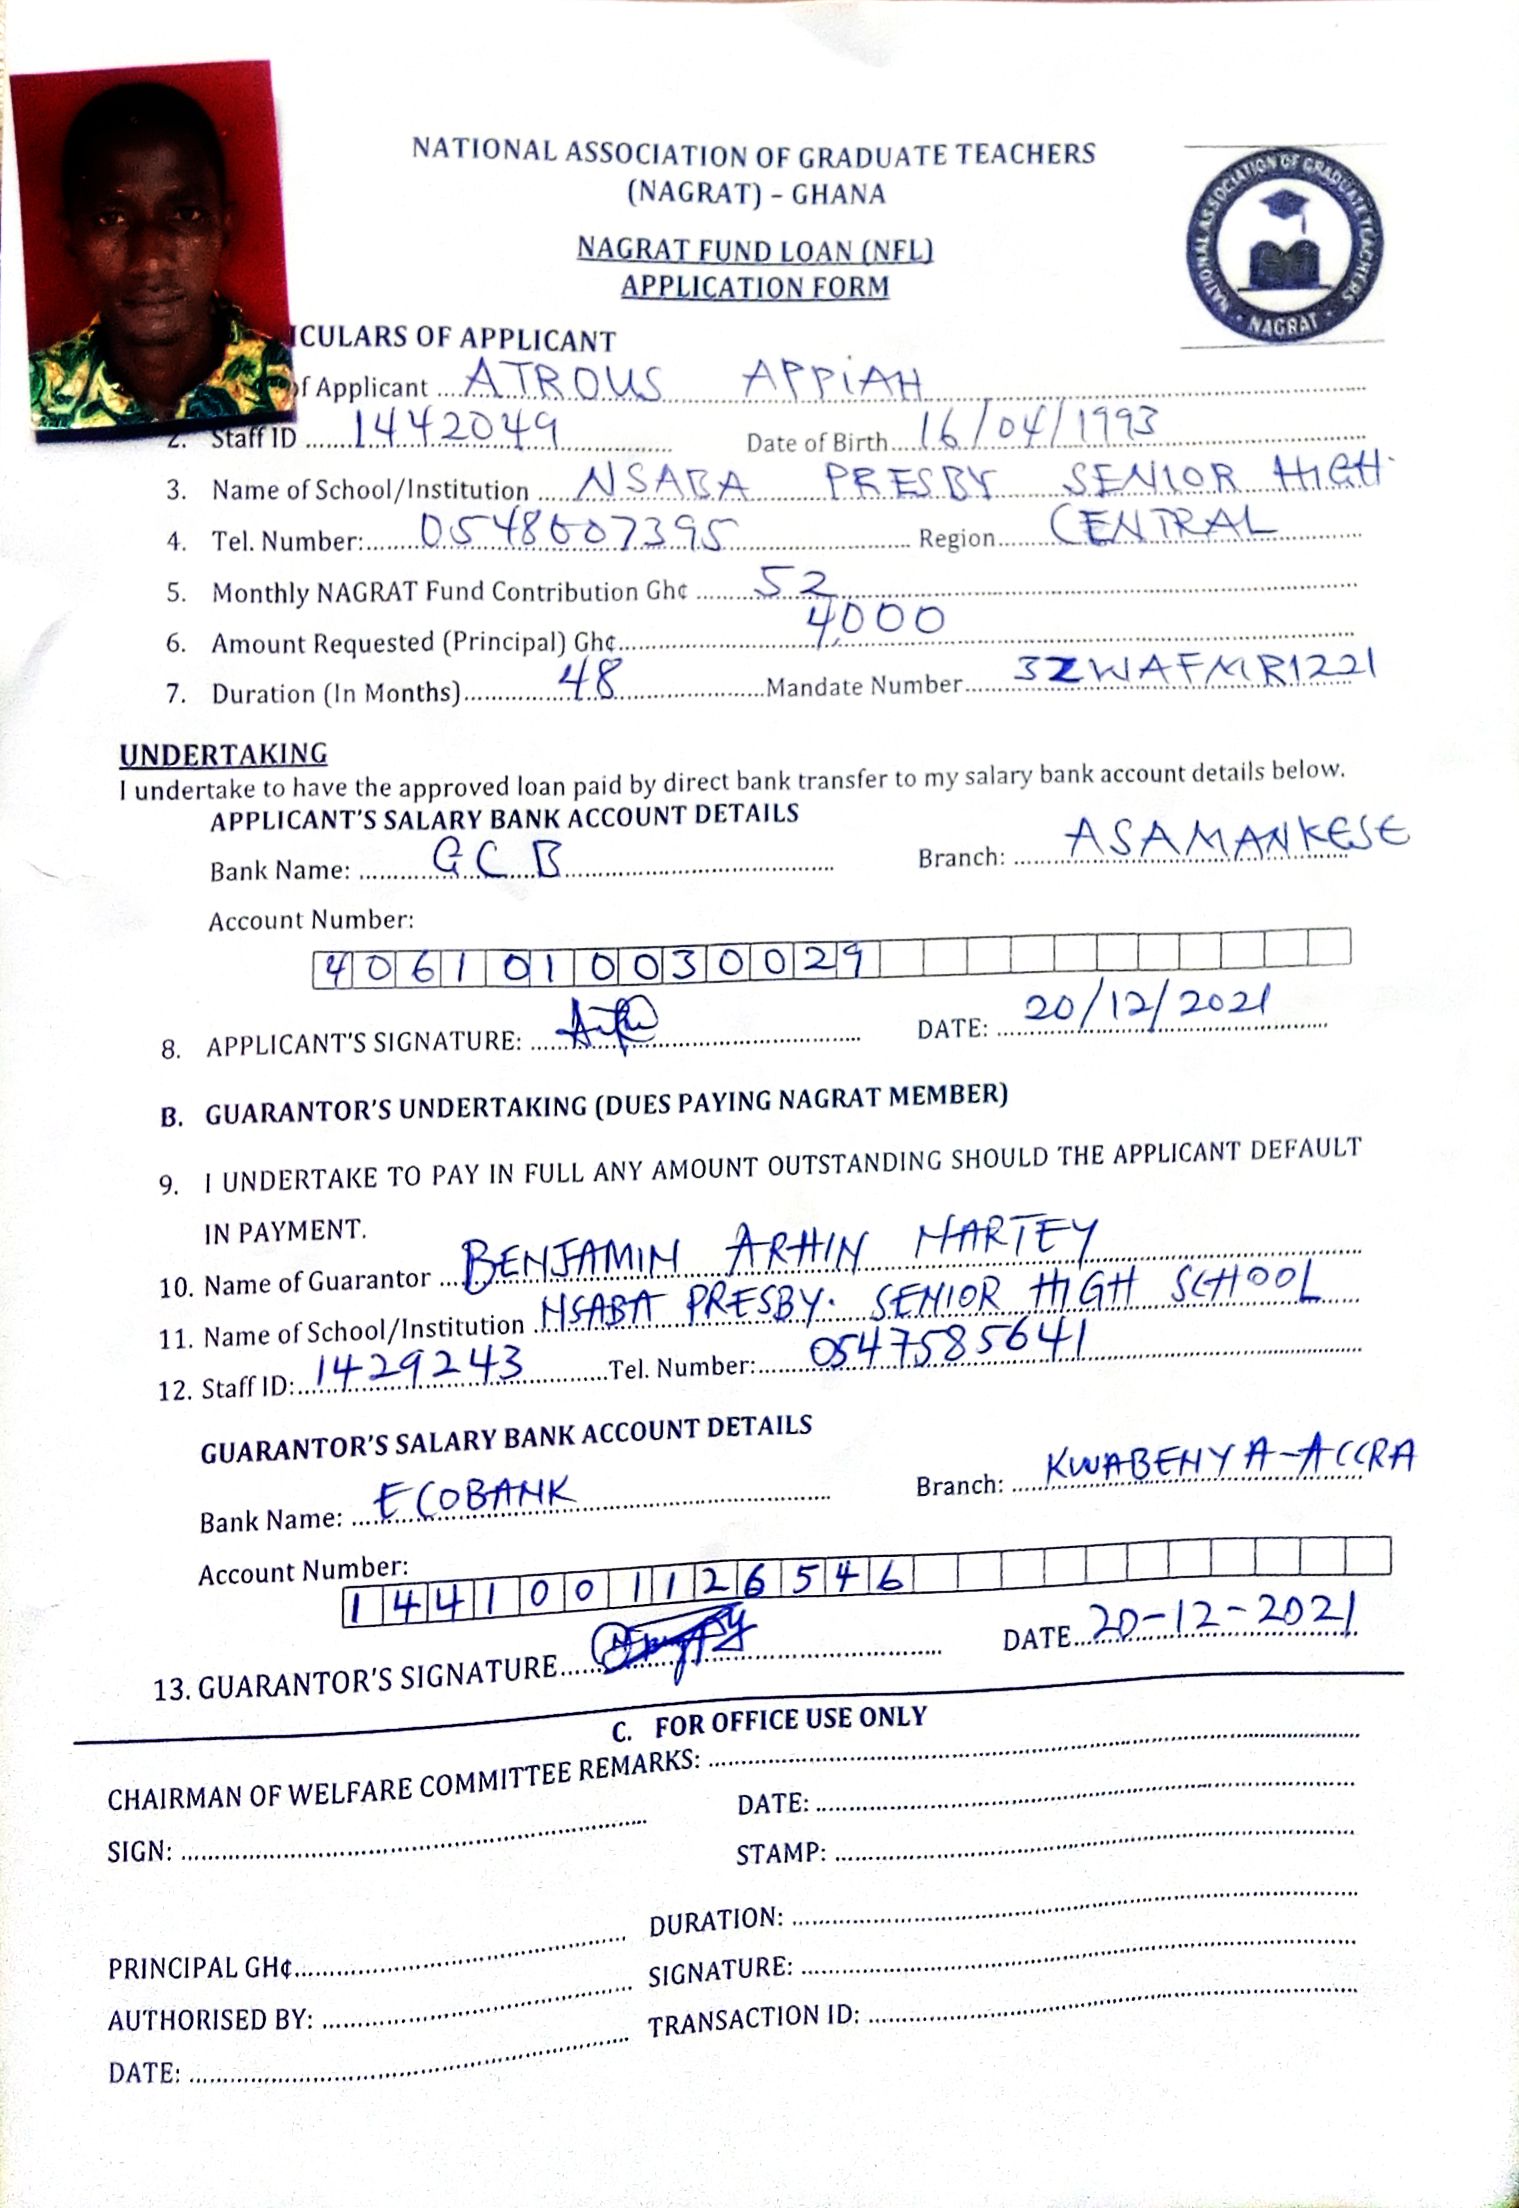 NATIONAL ASSOCIATION OF GRADUATE TEACHERS
(NAGRAT) – GHANA
NAGRAT FUND LOAN (NFL)
APPLICATION FORM
NATIONAL ASSOCIATION OF GRADUATE TEACHERS
NAGRAT
ICULARS OF APPLICANT
of Applicant .... ATROUS APPIAH
2. Staff ID ....... 1442049 Date of Birth.... 16/04/1993
3. Name of School/Institution ..... NSABA PRESBY SENIOR HIGH.
4. Tel. Number:....... 0548607395 Region....... CENTRAL
5. Monthly NAGRAT Fund Contribution Gh¢ ......... 52
6. Amount Requested (Principal) Gh¢....... 4,000
7. Duration (In Months)....... 48 Mandate Number....... 3ZWAFMR1221
UNDERTAKING
I undertake to have the approved loan paid by direct bank transfer to my salary bank account details below.
APPLICANT'S SALARY BANK ACCOUNT DETAILS
Bank Name: ....... GCB Branch: ....... ASAMANKESE
Account Number:
4061010030029
8. APPLICANT'S SIGNATURE: ....... DATE: ....... 20/12/2021
B. GUARANTOR'S UNDERTAKING (DUES PAYING NAGRAT MEMBER)
9. I UNDERTAKE TO PAY IN FULL ANY AMOUNT OUTSTANDING SHOULD THE APPLICANT DEFAULT
IN PAYMENT.
10. Name of Guarantor ..... BENJAMIN ARHIN NARTEY
11. Name of School/Institution ..... NSABA PRESBY. SENIOR HIGH SCHOOL
12. Staff ID:..... 1429243 .......Tel. Number:....... 0547585641
GUARANTOR'S SALARY BANK ACCOUNT DETAILS
Bank Name: ..... ECOBANK Branch: ....... KWABENYA-ACCRA
Account Number:
1441001126546
13. GUARANTOR'S SIGNATURE....... DATE.... 20-12-2021
C. FOR OFFICE USE ONLY
CHAIRMAN OF WELFARE COMMITTEE REMARKS: .......
SIGN: ....... DATE: .......
STAMP: .......
PRINCIPAL GH¢....... DURATION: .......
AUTHORISED BY: ....... SIGNATURE: .......
DATE: ....... TRANSACTION ID: .......